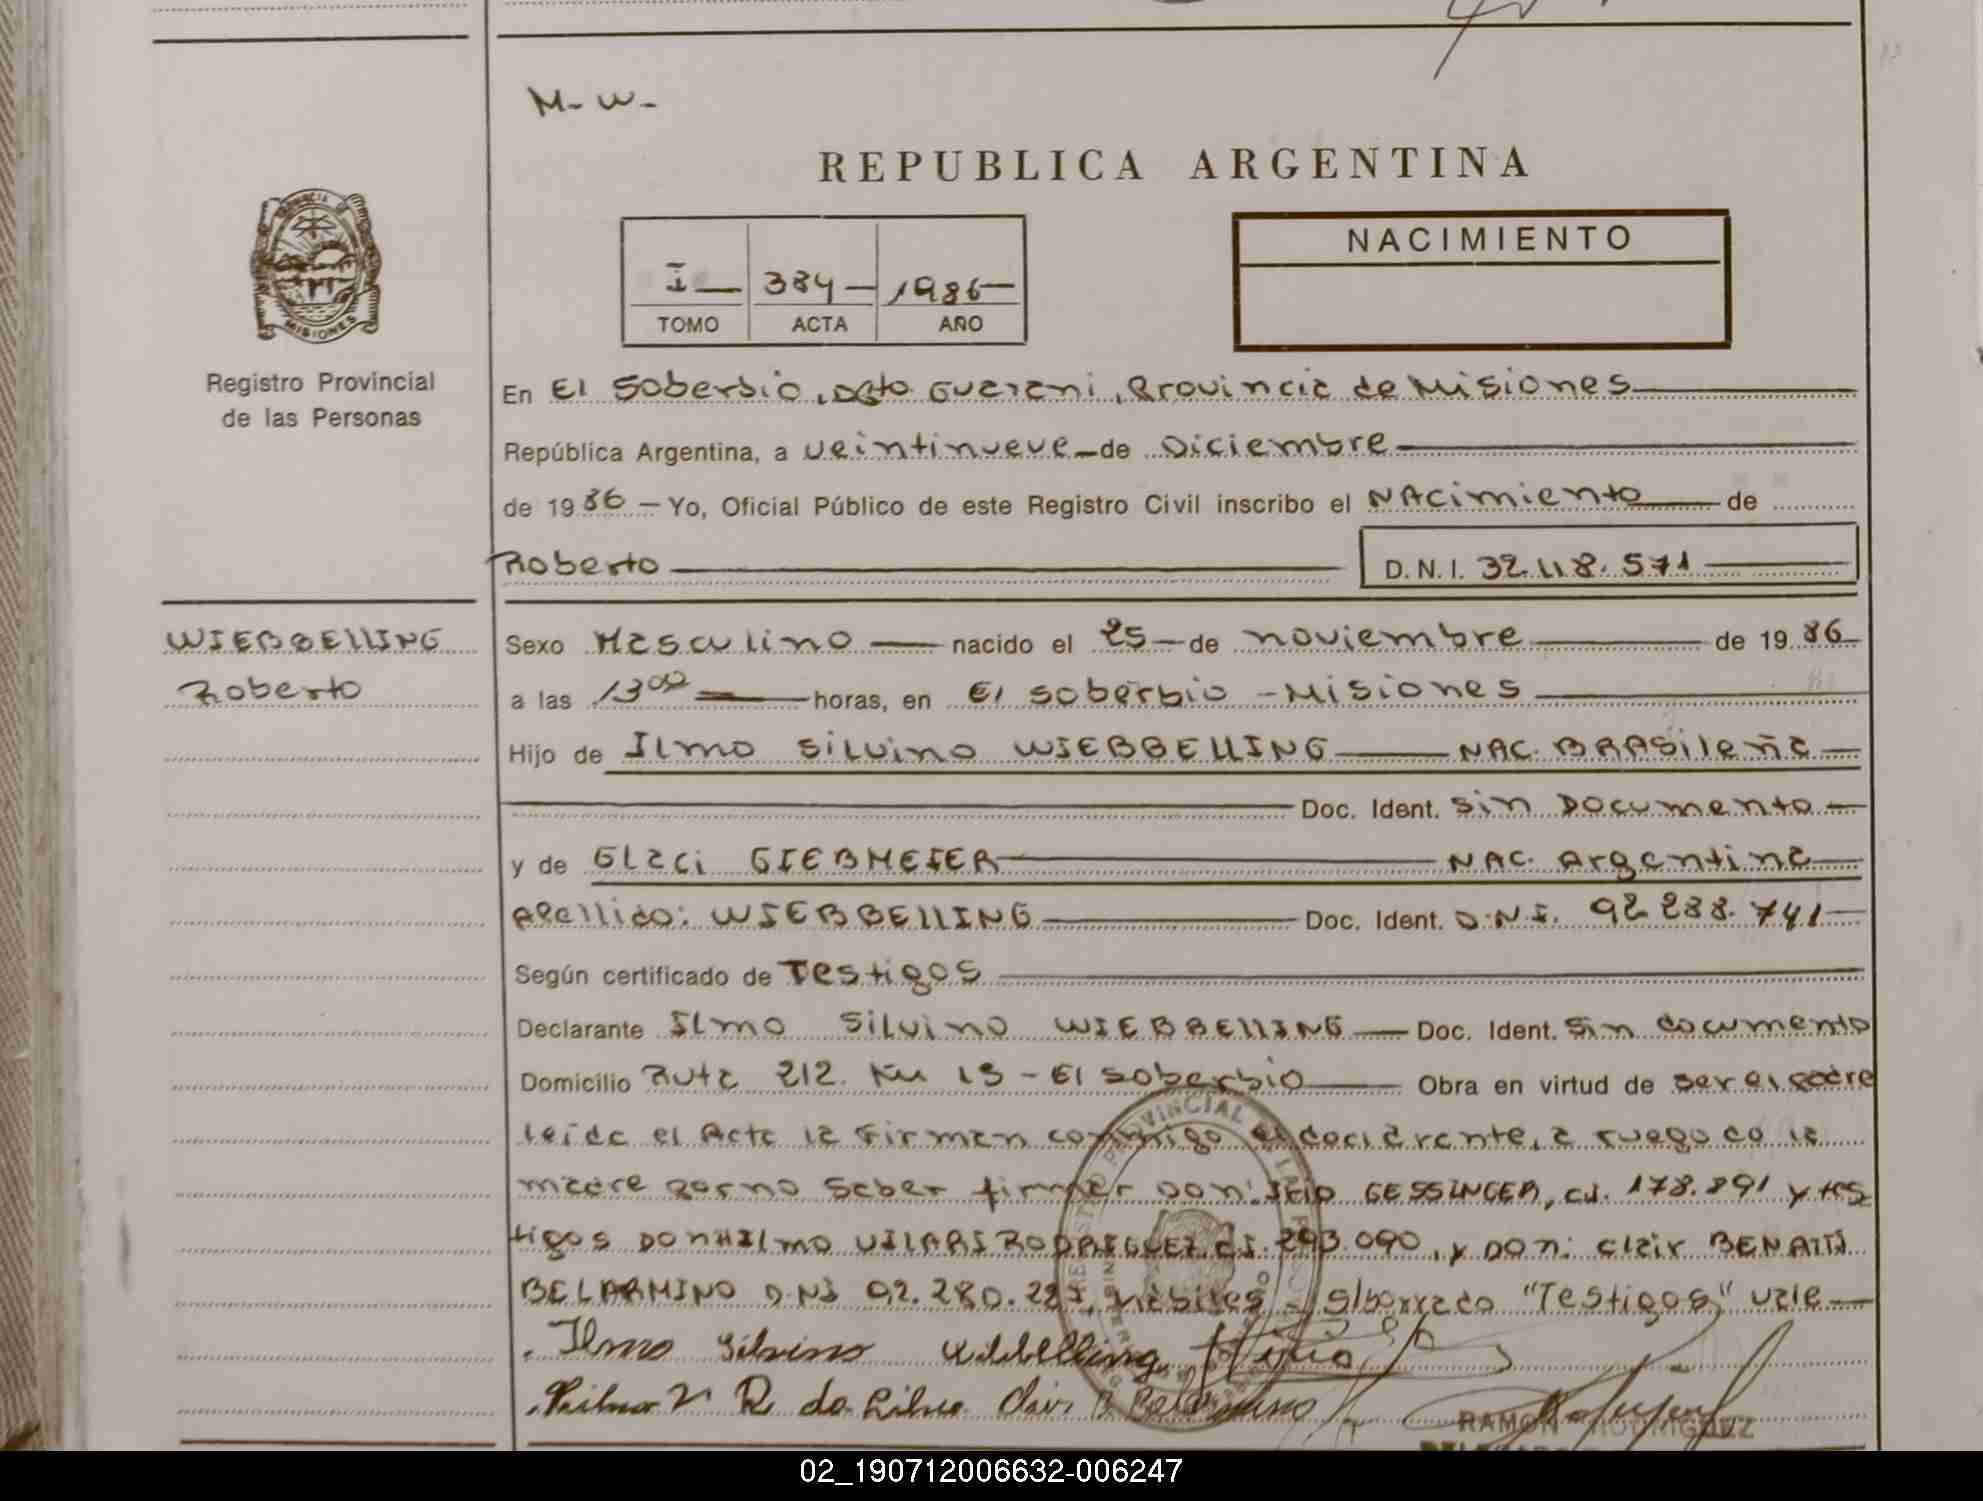 M- W-
REPUBLICA ARGENTINA
I 384 1986
TOMO ACTA AÑO
NACIMIENTO
PROVINCIA DE
MISIONES
Registro Provincial
de las Personas
En El Soberbio, Dpto Guarani, Provincia de Misiones
República Argentina, a veintinueve de Diciembre
de 1986 — Yo, Oficial Público de este Registro Civil inscribo el NAcimiento de
Roberto D.N.I. 32.118.571
WIEBBELLING
Roberto
Sexo Masculino nacido el 25 de noviembre de 1986
a las 13 00 horas, en El Soberbio - Misiones
Hijo de Ilmo Silvino WIEBBELLING NAC. BRASileña
Doc. Ident. Sin Documento
y de Glaci GIEBMEIER NAC. Argentina
Apellido: WIEBBELLING Doc. Ident. D.N.I. 92.288.741
Según certificado de Testigos
Declarante Ilmo Silvino WIEBBELLING Doc. Ident. Sin documento
Domicilio Ruta 212 Km 13 - El Soberbio Obra en virtud de ser el padre
leida el Acta la Firman conmigo el declarante, a ruego de la
madre por no saber firmar Don: GESSINGER, C.I. 178.891 y tes
tigos DON HIlmo VILARI RODRIGUEZ C.I. 293.090, y DON: Clair BENATTI
BELARMINO DNI 92.280.227, Habiles - S/borrado "Testigos" vale
Ilmo Silvino Wiebbelling
R da Silva Clair B Belarmino
RAMON RODRIGUEZ
02_190712006632-006247